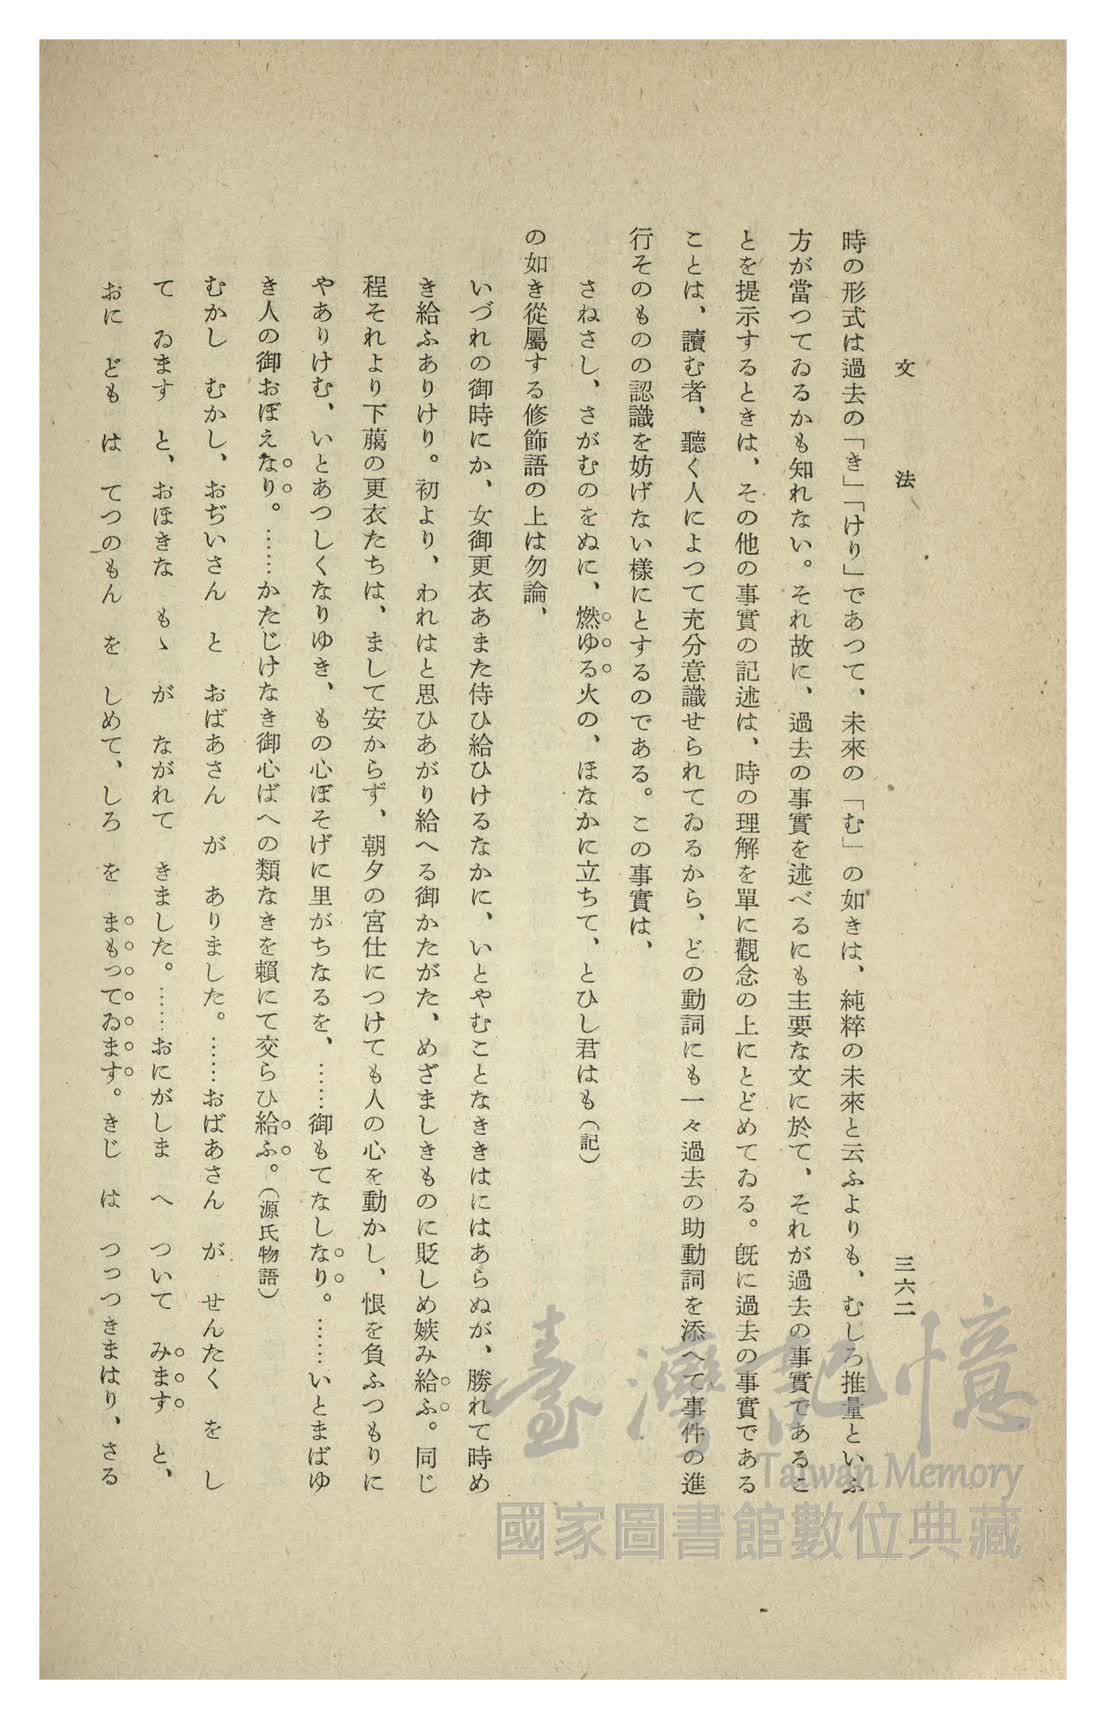 文法
三六二
時の形式は過去の「き」「けり」であつて、未來の「む」の如きは、純粹の未來と云ふよりも、むしろ推量といふ
方が當つてゐるかも知れない。それ故に、過去の事實を述べるにも主要な文に於て、それが過去の事實であるこ
とを提示するときは、その他の事實の記述は、時の理解を單に觀念の上にとどめてゐる。旣に過去の事實である
ことは、讀む者、聽く人によつて充分意識せられてゐるから、どの動詞にも一々過去の助動詞を添へて事件の進
行そのものの認識を妨げない樣にとするのである。この事實は、
さねさし、さがむのをぬに、燃ゆる火の、ほなかに立ちて、とひし君はも（記）
の如き從屬する修飾語の上は勿論、
いづれの御時にか、女御更衣あまた侍ひ給ひけるなかに、いとやむことなききはにはあらぬが、勝れて時め
き給ふありけり。初より、われはと思ひあがり給へる御かたがた、めざましきものに貶しめ嫉み給ふ。同じ
程それより下﨟の更衣たちは、まして安からず、朝夕の宮仕につけても人の心を動かし、恨を負ふつもりに
やありけむ、いとあつしくなりゆき、もの心ぼそげに里がちなるを、……御もてなしなり。……いとまばゆ
き人の御おぼえなり。……かたじけなき御心ばへの類なきを賴にて交らひ給ふ。（源氏物語）
むかし むかし、おぢいさん と おばあさん が ありました。……おばあさん が せんたく を し
て ゐます と、おほきな もゝ が ながれて きました。……おにがしま へ ついて みます と、
おに ども は てつのもん を しめて、しろ を まもつてゐます。きじ は つつつきまはり、さる
臺灣記憶
Taiwan Memory
國家圖書館數位典藏